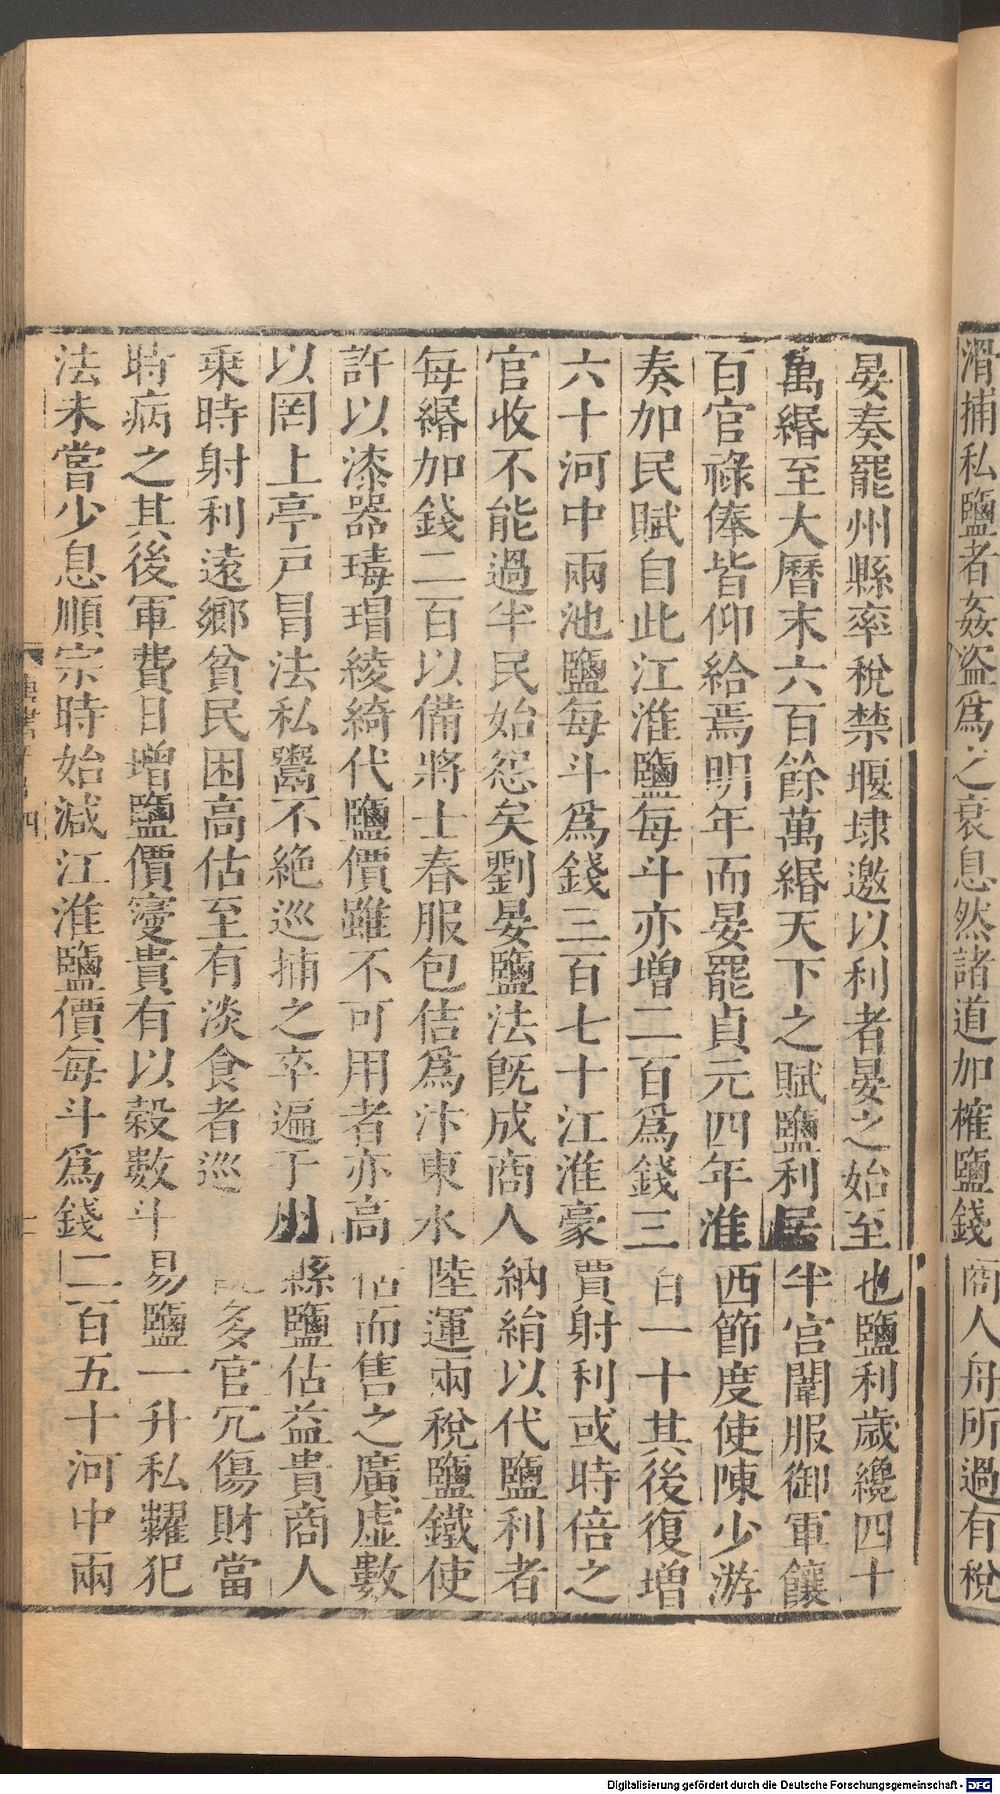 滑捕私鹽者姦盜爲之衰息然諸道加榷鹽錢商人舟所過有稅
晏奏罷州縣率稅禁堰埭邀以利者晏之始至也鹽利歲纔四十
萬緡至大曆末六百餘萬緡天下之賦鹽利居半宫闈服御軍饟
百官祿俸皆仰給焉明年而晏罷貞元四年淮西節度使陳少游
奏加民賦自此江淮鹽每斗亦增二百爲錢三百一十其後復增
六十河中兩池鹽每斗爲錢三百七十江淮豪賈射利或時倍之
官收不能過半民始怨矣劉晏鹽法旣成商人納絹以代鹽利者
每緡加錢二百以備將士春服包佶爲汴東水陸運兩稅鹽鐵使
許以漆器瑇瑁綾綺代鹽價雖不可用者亦高估而售之廣虛數
以罔上亭戶冒法私鬻不絶巡捕之卒遍于州縣鹽估益貴商人
乘時射利遠鄉貧民困高估至有淡食者巡多官冗傷財當
時病之其後軍費日增鹽價寖貴有以穀數斗易鹽一升私糶犯
法未嘗少息順宗時始減江淮鹽價每斗爲錢二百五十河中兩
四
Digitalisierung gefördert durch die Deutsche Forschungsgemeinschaft - DFG